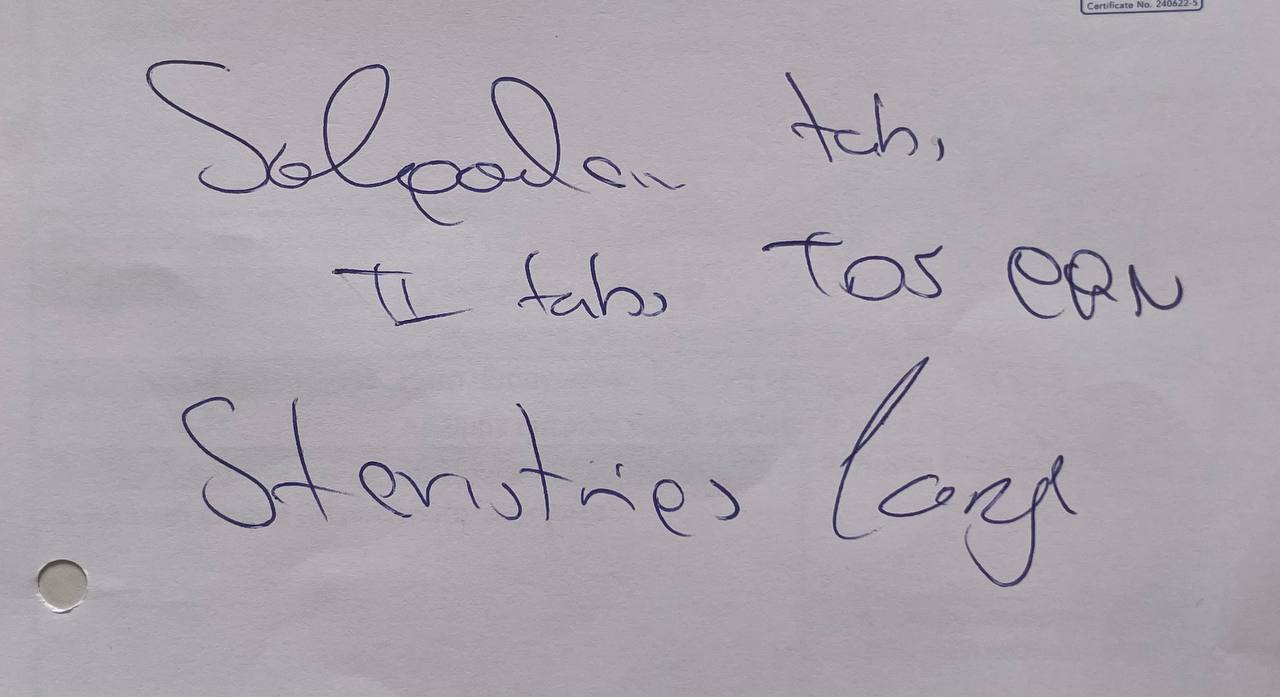 Certificate No. 240622-5
Solpadein tab.
II tabs TDS PRN
Steristrips large